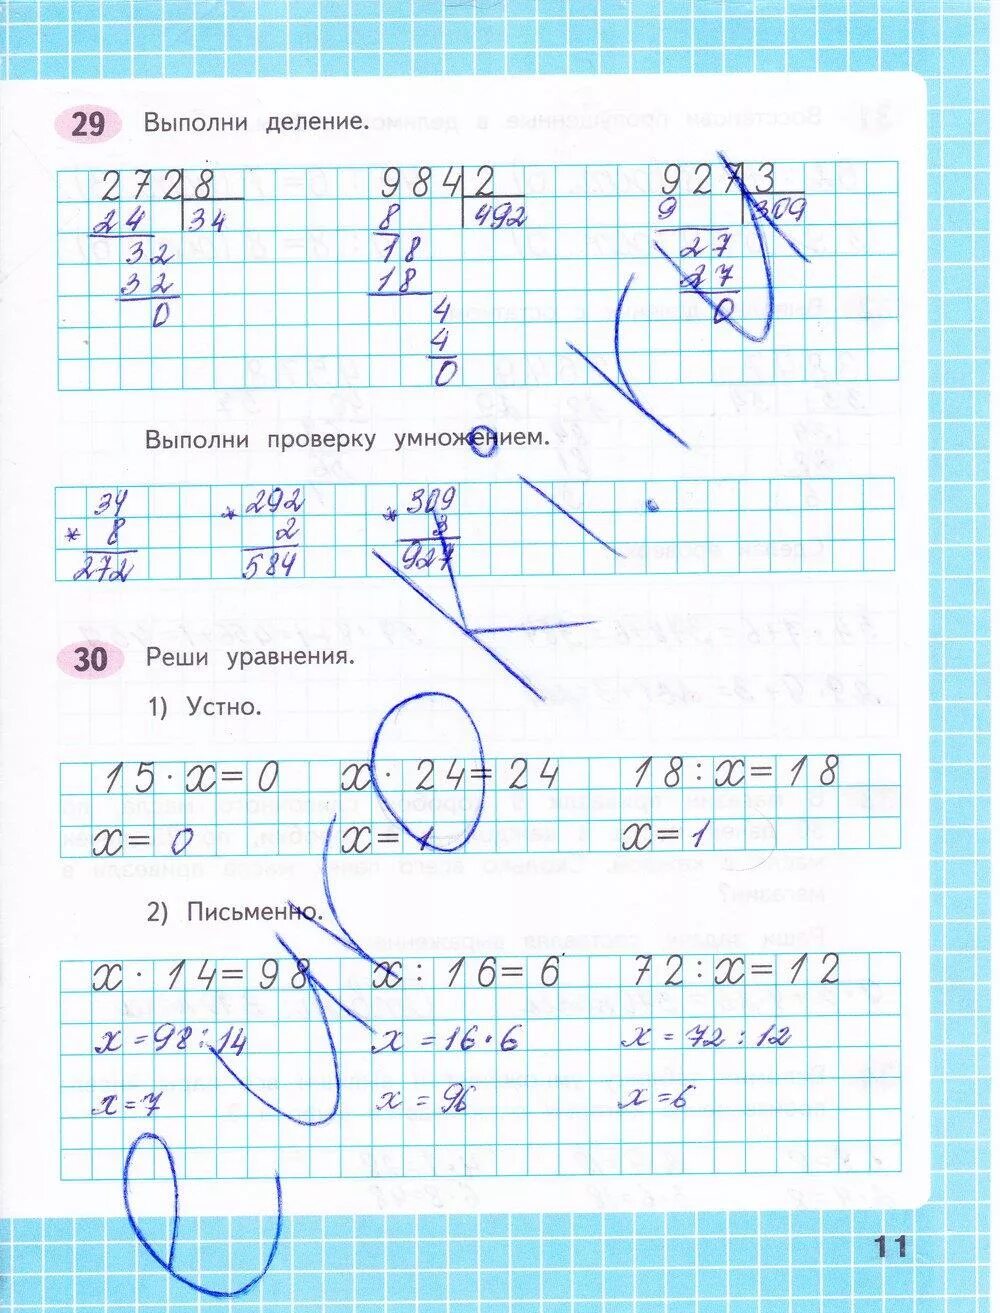 29 Выполни деление.
272 8 984 2 927 3
24 34 8 492 9 309
32 18 27
32 18 27
0 4 0
4
0
Выполни проверку умножением.
34 292 309
* 8 * 2 * 3
272 584 927
30 Реши уравнения.
1) Устно.
15 · x = 0 x · 24 = 24 18 : x = 18
x = 0 x = 1 x = 1
2) Письменно.
x · 14 = 98 x : 16 = 6 72 : x = 12
x = 98 : 14 x = 16 · 6 x = 72 : 12
x = 7 x = 96 x = 6
11